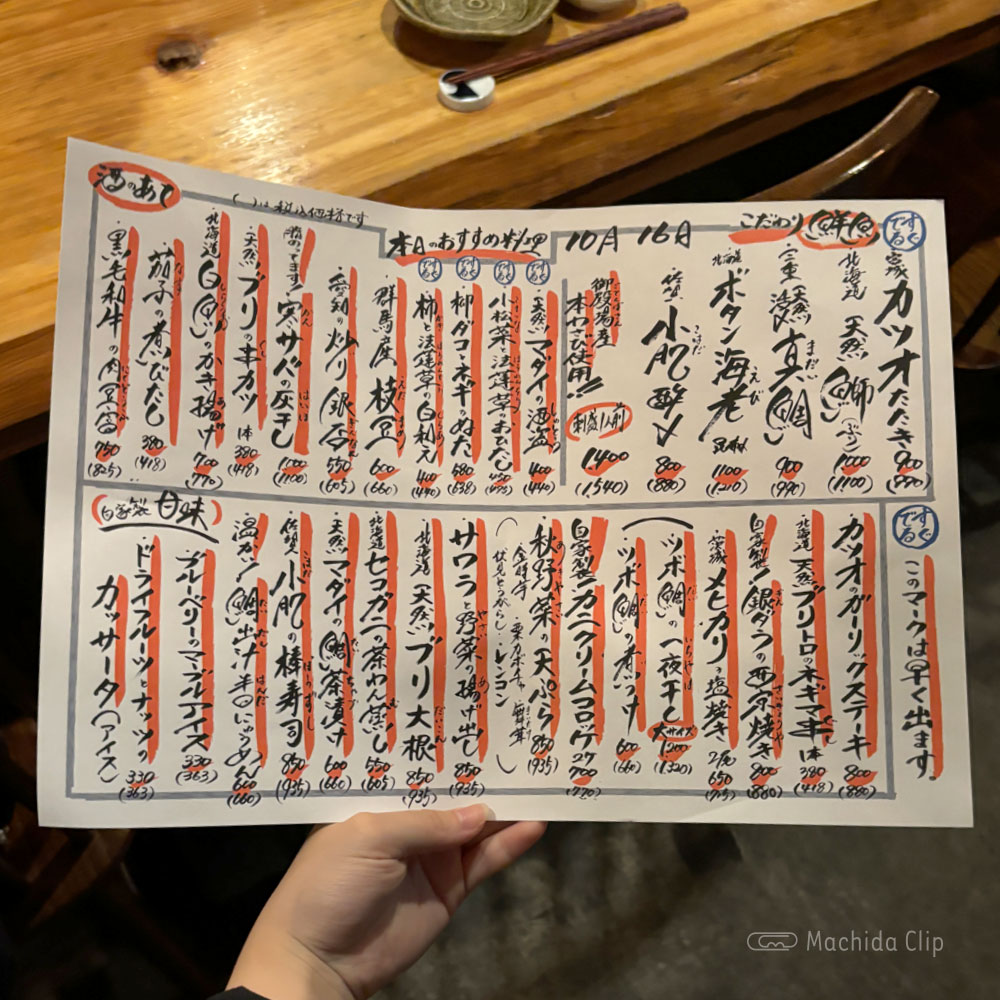 こだわり 鮮魚
すぐでる
宮城 カツオたたき 900 (990)
北海道 天然 鰤 (ぶり) 1000 (1100)
三重 天然 真鯛 まだい 900 (990)
北海道 ボタン海老 えび 1100 (1210)
佐賀 小肌酢〆 こはだ 800 (880)
御殿場産
本わさび使用!!
刺盛1人前
1,400 (1,540)
本日のおすすめ料理 10月16日
( )は税込価格です
酒のあて
すぐでる 天然マダイの酒盗 400 (440)
すぐでる 小松菜と法蓮草のおひたし 450 (495)
すぐでる 柳ダコとネギのぬた 580 (638)
すぐでる 柿と法蓮草の白和え 400 (440)
群馬産 枝豆 えだまめ 600 (660)
愛知の炒り銀杏 ぎんなん 550 (605)
寒サバの灰干し 1000 (1100)
・天然ブリの串カツ 1本 380 (418)
・北海道 白魚のかき揚げ 700 (770)
・茄子の煮びたし 380 (418)
・黒毛和牛の肉豆富 750 (825)
すぐでる このマークは早く出ます。
カツオのガーリックステーキ 800 (880)
・北海道 天然ブリトロのネギマ串 1本 380 (418)
自家製!銀ダラの西京焼き 800 (880)
・茨城 メヒカリの塩焼き 650 (715)
・ツボ鯛の一夜干し 大サイズ 1200 (1320)
・ツボ鯛の煮つけ 600 (660)
自家製 カニクリームコロッケ 2ケ 700 (770)
・秋野菜の天ぷら 850 (935)
伏見とうがらし・レンコン
・サワラと野菜の揚げ出し 850 (935)
・北海道 天然ブリ大根 だいこん 850 (935)
・北海道 セコガニの茶わん蒸し 550 (605)
・天然マダイの鯛茶漬け 600 (660)
・佐賀 小肌の棒寿司 850 (935)
・温かい鯛出汁半田にゅうめん 600 (660)
自家製 甘味
・ブルーベリーマーブルアイス 330 (363)
・ドライフルーツとナッツの
カッサータ(アイス) 330 (363)
Machida Clip